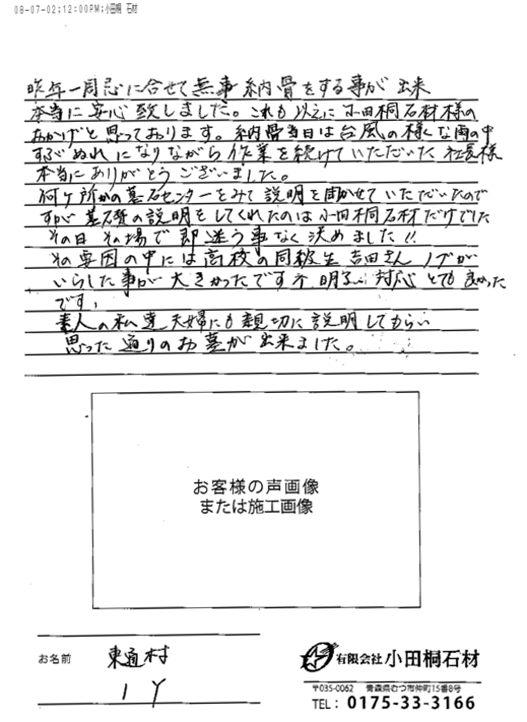 08-07-02;12:00PM;小田桐 石材
昨年一周忌に合せて無事納骨をする事が出来
本当に安心致しました。これも以えに小田桐石材様の
おかげと思っております。納骨当日は台風の様な雨の中
ずぶぬれになりながら作業を続けていただいた社長様
本当にありがとうございました。
何ヶ所かの墓石センターをみて説明を聞かせていただいたので
すが墓石の説明をしてくれたのは小田桐石材だけでした
その日その場で即迷う事なく決めました!!
その要因の中には高校の同級生吉田さん
いらした事が大きかったです 明るい対応とても良かった
です。
素人の私達夫婦にも親切に説明してもらい
思った通りのお墓が出来ました。
お客様の声画像
または施工画像
お名前 東通村
I Y
有限会社 小田桐石材
〒035-0062 青森県むつ市仲町15番8号
TEL 0175-33-3166